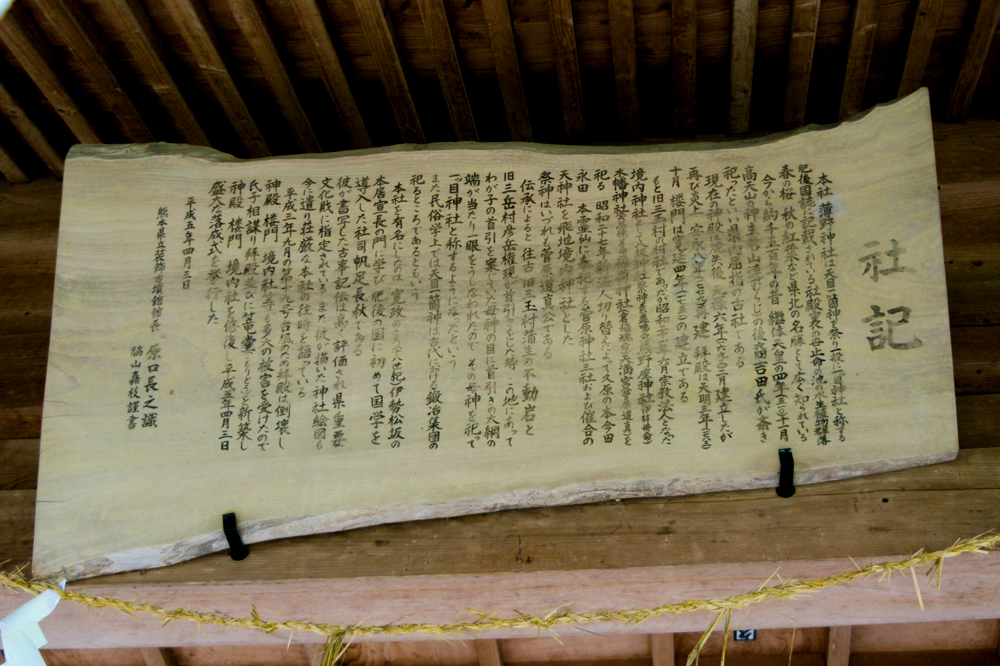 社記
本社薄野神社は天目一箇神を祭り一般に一目神社と称する
肥後国誌に記載されている社殿
春の桜 秋の紅葉など県北の名勝として広く知られている
今から約千五百年の昔 継体天皇の四年 十一月
高天山の神主 の後裔吉田氏が斎き
祀ったといい県下屈指の古社である
現在の神殿は焼失後 元禄六年 三月建立したが
再び炎上 安永八年 再建 拝殿は天明三年
十月 楼門は寛延四年 の建立である
もと旧三玉村の郷社であったが昭和二十 年六月宗教法人となった
境内神社として
木幡神社 を
祀る 昭和二十七年 切り替えによって久原の本今田
永田 本霊仙 に在る菅原神社三社および
天神社を飛地境内神社とした
祭神はいづれも菅原道真公である
伝承によると往古旧三玉村蒲生の不動岩と
旧三岳村彦岳権現が首引きをした時 この地にあって
わが子の首引を案じていた母神の目に首引きの大綱の
端が当たり一眼をうしなわれたので その母神を祀って
一目神社と称するようになったという
また民俗学上では天目一箇神は古代における鍛冶集団の
祀るところであるともいう
本社を有名にしたのは 寛政のころ 伊勢松坂の
本居宣長の門に学び肥後の国に初めて国学を
導入した本社司帆足長秋である
彼が書写した古事記伝は高く評価され県重要
文化財に指定されている また彼が描いた神社絵図も
今に遺り荘厳な本社の往時を語っている
平成三年九月の第十九号台風のため拝殿は倒壊し
神殿 楼門 境内社等も多大の被害を受けたので
氏子相謀り拝殿並びに篭堂 を新築し
神殿 楼門 境内社を修復し平成五年四月三日
盛大な落成式を挙行した
平成五年四月三日
熊本県立装飾古墳館館長 原口長之識
脇山嘉枝謹書